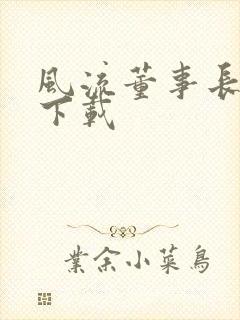 風流董事長
下載
業余小菜鳥